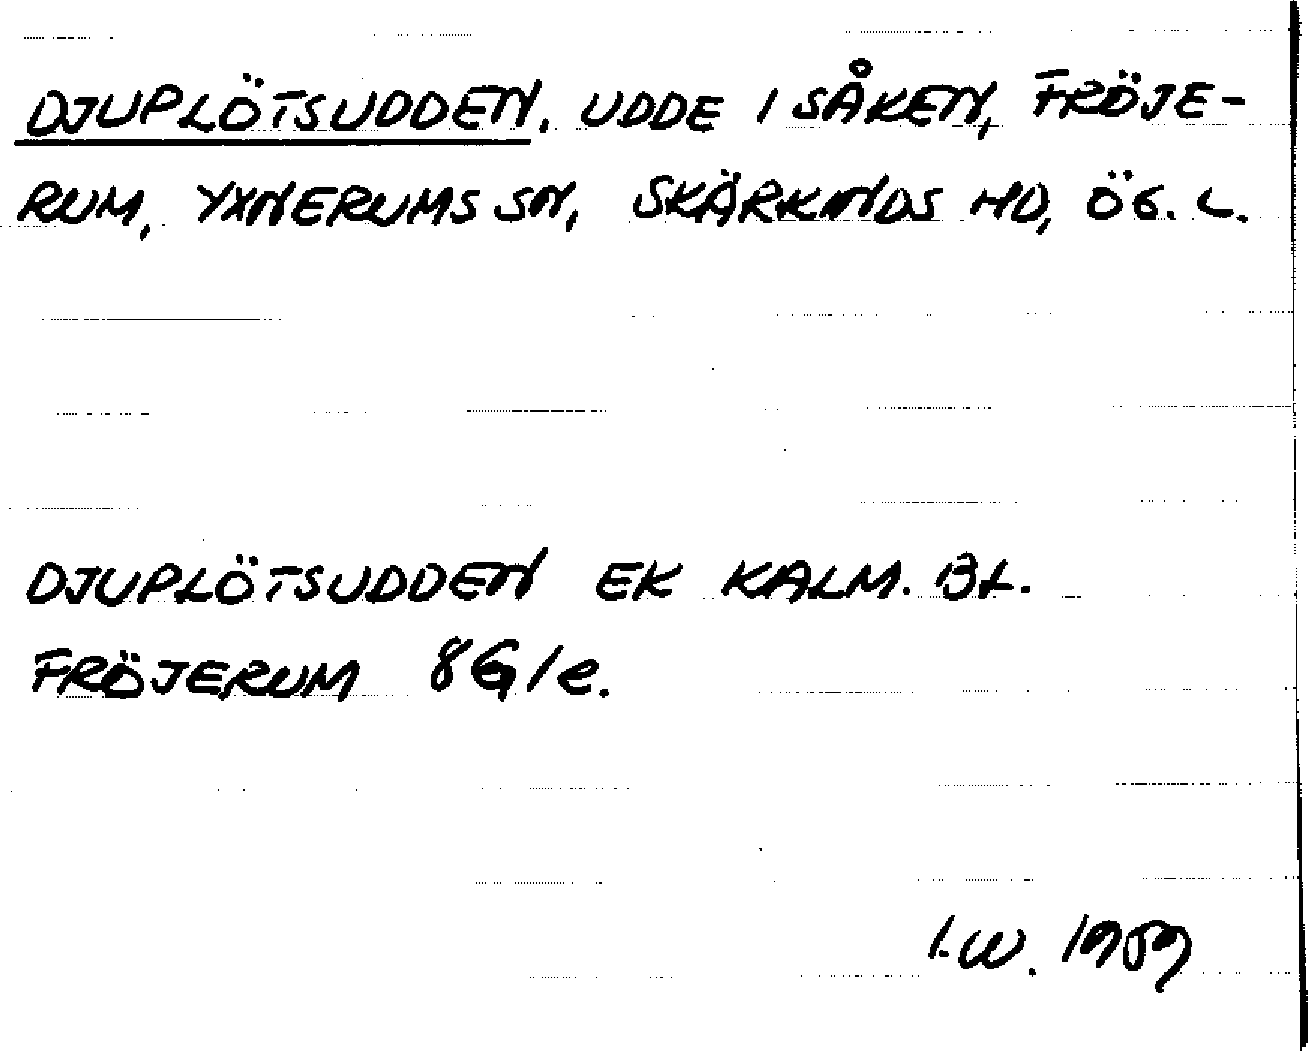 DJUPLÖTSUDDEN. UDDE I SÅKEN, FRÖJE-
RUM, YXNERUMS SN, SKÄRKINDS HD, ÖG. L.
DJUPLÖTSUDDEN EK KALM. BL.
FRÖJERUM 8G/e.
I.W. 1959